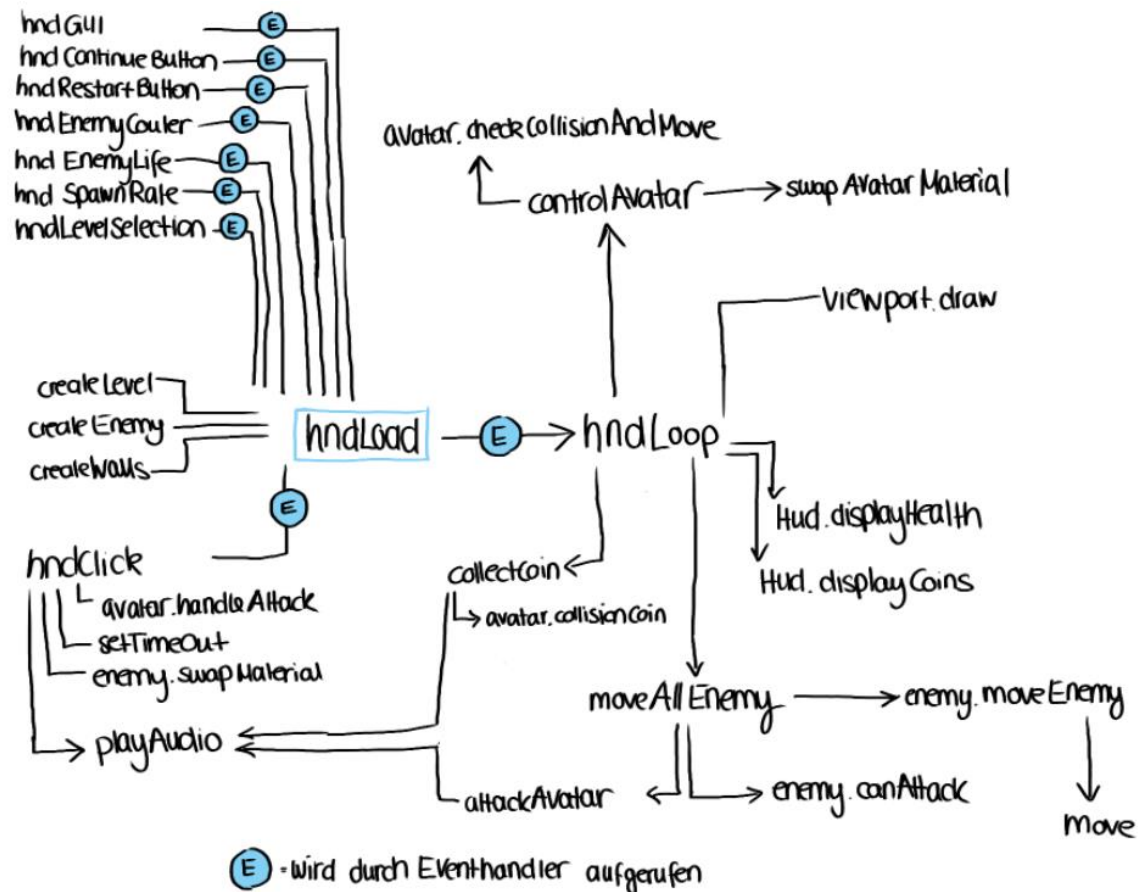 hndGUI
E
hnd ContinueButton
E
hndRestartButton
E
hndEnemyCouter
E
hnd EnemyLife
E
hnd SpawnRate
E
hndLevelSelection
E
avatar.checkCollisionAndMove
controlAvatar
swapAvatarMaterial
Viewport.draw
createLevel
createEnemy
createWalls
hndLoad
E
hndLoop
E
Hud.displayHealth
Hud.displayCoins
hndClick
avatar.handleAttack
setTimeOut
enemy.swapMaterial
playAudio
collectCoin
avatar.collisionCoin
moveAllEnemy
enemy.moveEnemy
attackAvatar
enemy.canAttack
move
E = wird durch Eventhandler aufgerufen